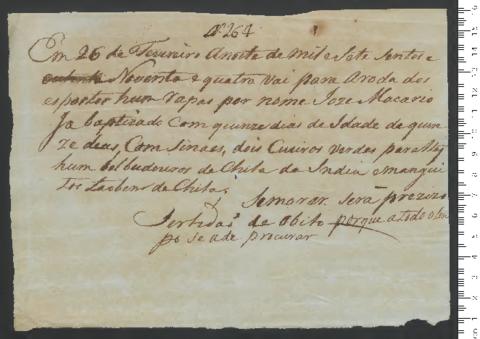 Nº 264
Em 26 de Fevereiro anoite de mil e Sete Sentos e
outenta Noventa e quatro Vai para aroda dos
espostos hum Rapas por nome Joze Macario
Ja baptizado Com quinze dias de Idade de quin
ze dias, Com Sinaes, dois Cueiros Verdes
hum de Chita da India e mangui
tos taobem de Chita,
Semorrer Será prezizo
Sertidaõ de obito porque a todo o tem
po se a de procurar